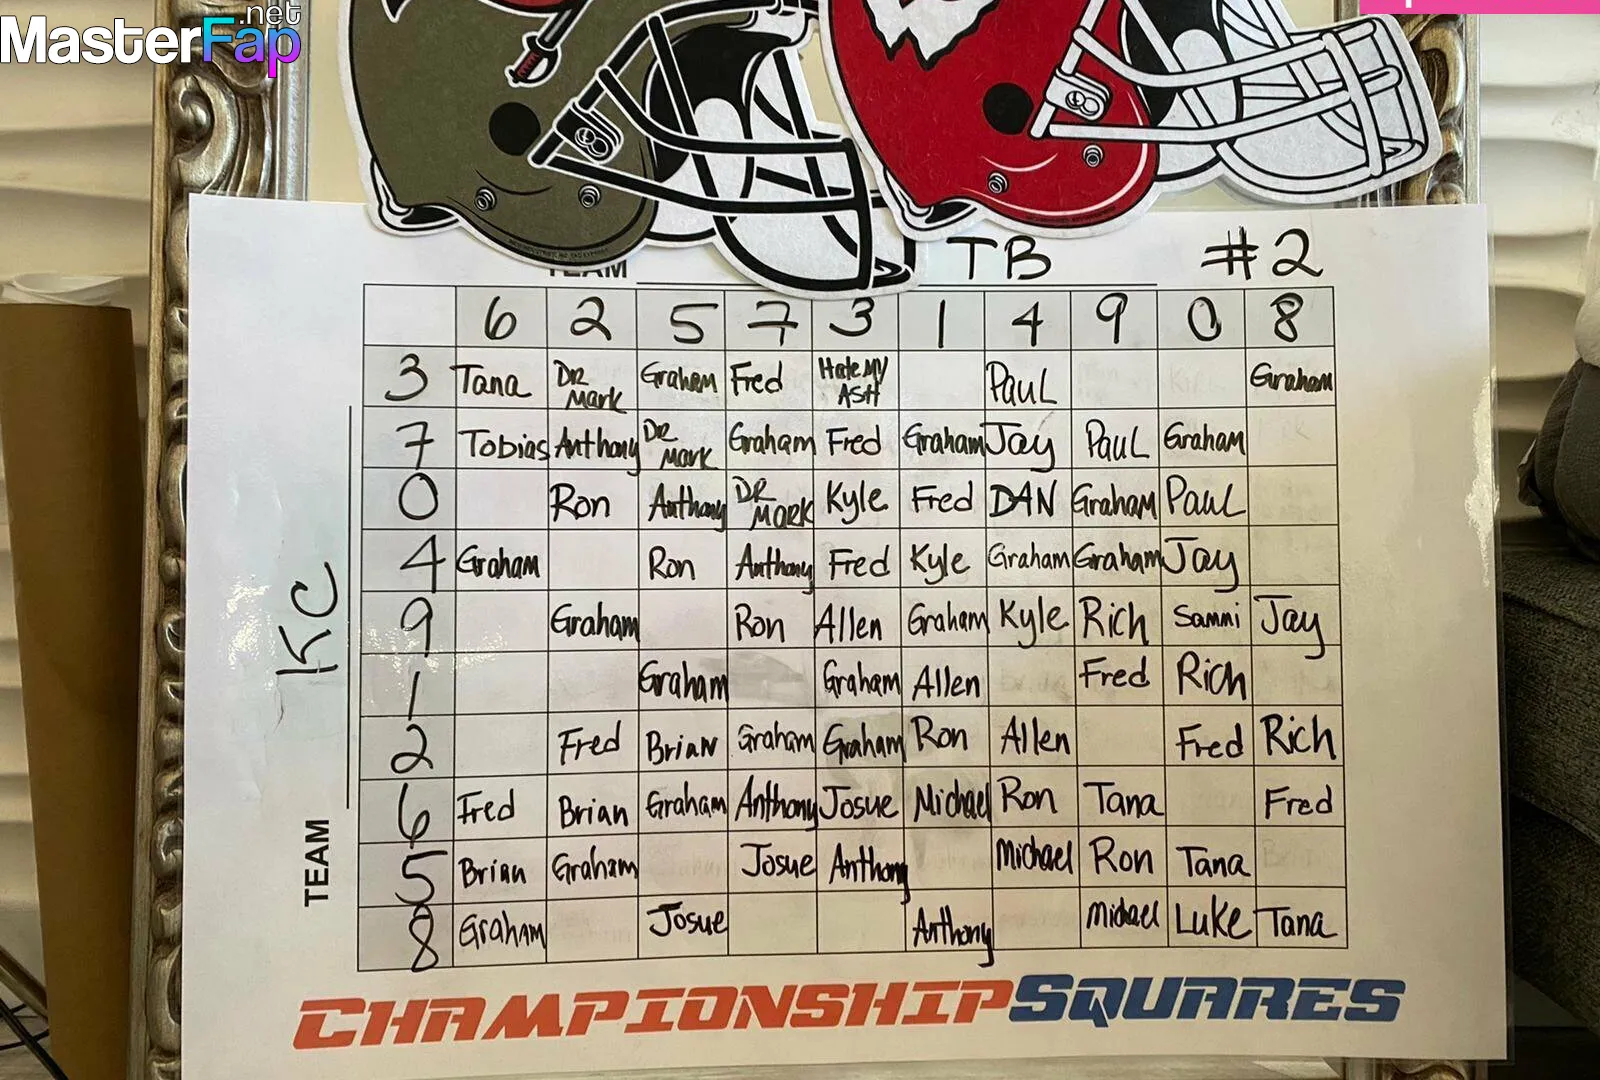 MasterFap
.net
TEAM TB #2
6 2 5 7 3 1 4 9 0 8
3 Tana DR Mark Graham Fred Hate My ASH Paul Graham
7 Tobias Anthony DR Mark Graham Fred Graham Jay Paul Graham
0 Ron Anthony DR MARK Kyle Fred DAN Graham Paul
4 Graham Ron Anthony Fred Kyle Graham Graham Jay
9 Graham Ron Allen Graham Kyle Rich Sammi Jay
1 Graham Graham Allen Fred Rich
2 Fred Brian Graham Graham Ron Allen Fred Rich
6 Fred Brian Graham Anthony Josue Michael Ron Tana Fred
5 Brian Graham Josue Anthony Michael Ron Tana
8 Graham Josue Anthony Michael Luke Tana
TEAM KC
CHAMPIONSHIPSQUARES